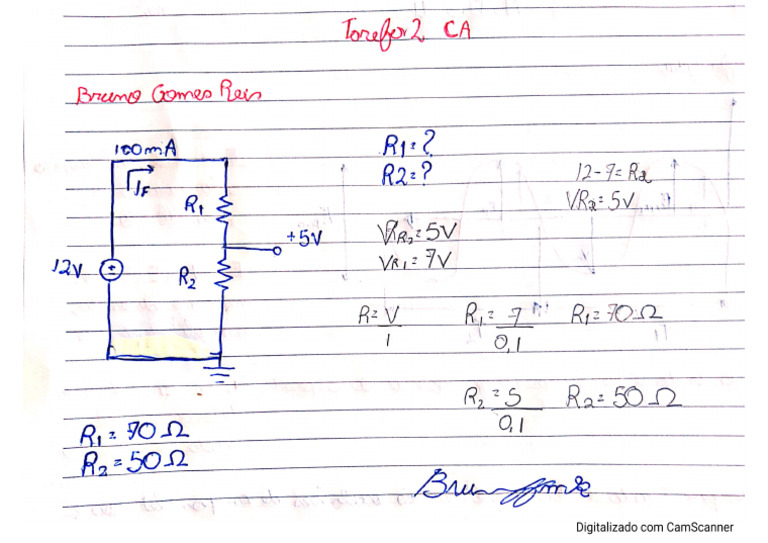 Tarefa 2 CA
Bruno Gomes Reis
100mA
IF
R1
+5V
12V
R2
R1=?
R2=?
12-7=R2
VR2=5V
VR2=5V
VR1=7V
R=V/I
R1=7/0,1
R1=70Ω
R2=5/0,1
R2=50Ω
R1=70Ω
R2=50Ω
Digitalizado com CamScanner